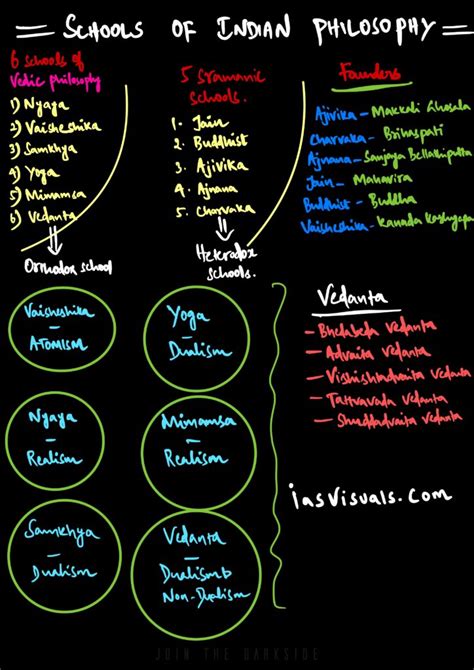 SCHOOLS OF INDIAN PHILOSOPHY
6 schools of
Vedic philosophy
1) Nyaya
2) Vaisheshika
3) Samkhya
4) Yoga
5) Mimamsa
6) Vedanta
Orthodox school
5 Sramanic
schools.
1. Jain
2. Buddhist
3. Ajivika
4. Ajnana
5. Charvaka
Heterodox
schools.
Founders
Ajivika - Makkali Ghosala
Charvaka - Brihaspati
Ajnana - Sanjaya Bellathiputta
Jain - Mahavira
Buddhist - Buddha
Vaisheshika - Kanada Kashyapa
Vaisheshika
-
ATOMISM
Yoga
-
Dualism
Nyaya
-
Realism
Mimamsa
-
Realism
Samkhya
-
Dualism
Vedanta
-
Dualism &
Non-Dualism
Vedanta
- Bhedabeda Vedanta
- Advaita Vedanta
- Vishishtadvaita Vedanta
- Tattvavada Vedanta
- Shuddadvaita Vedanta
iasVisuals.com
JOIN THE DARKSIDE